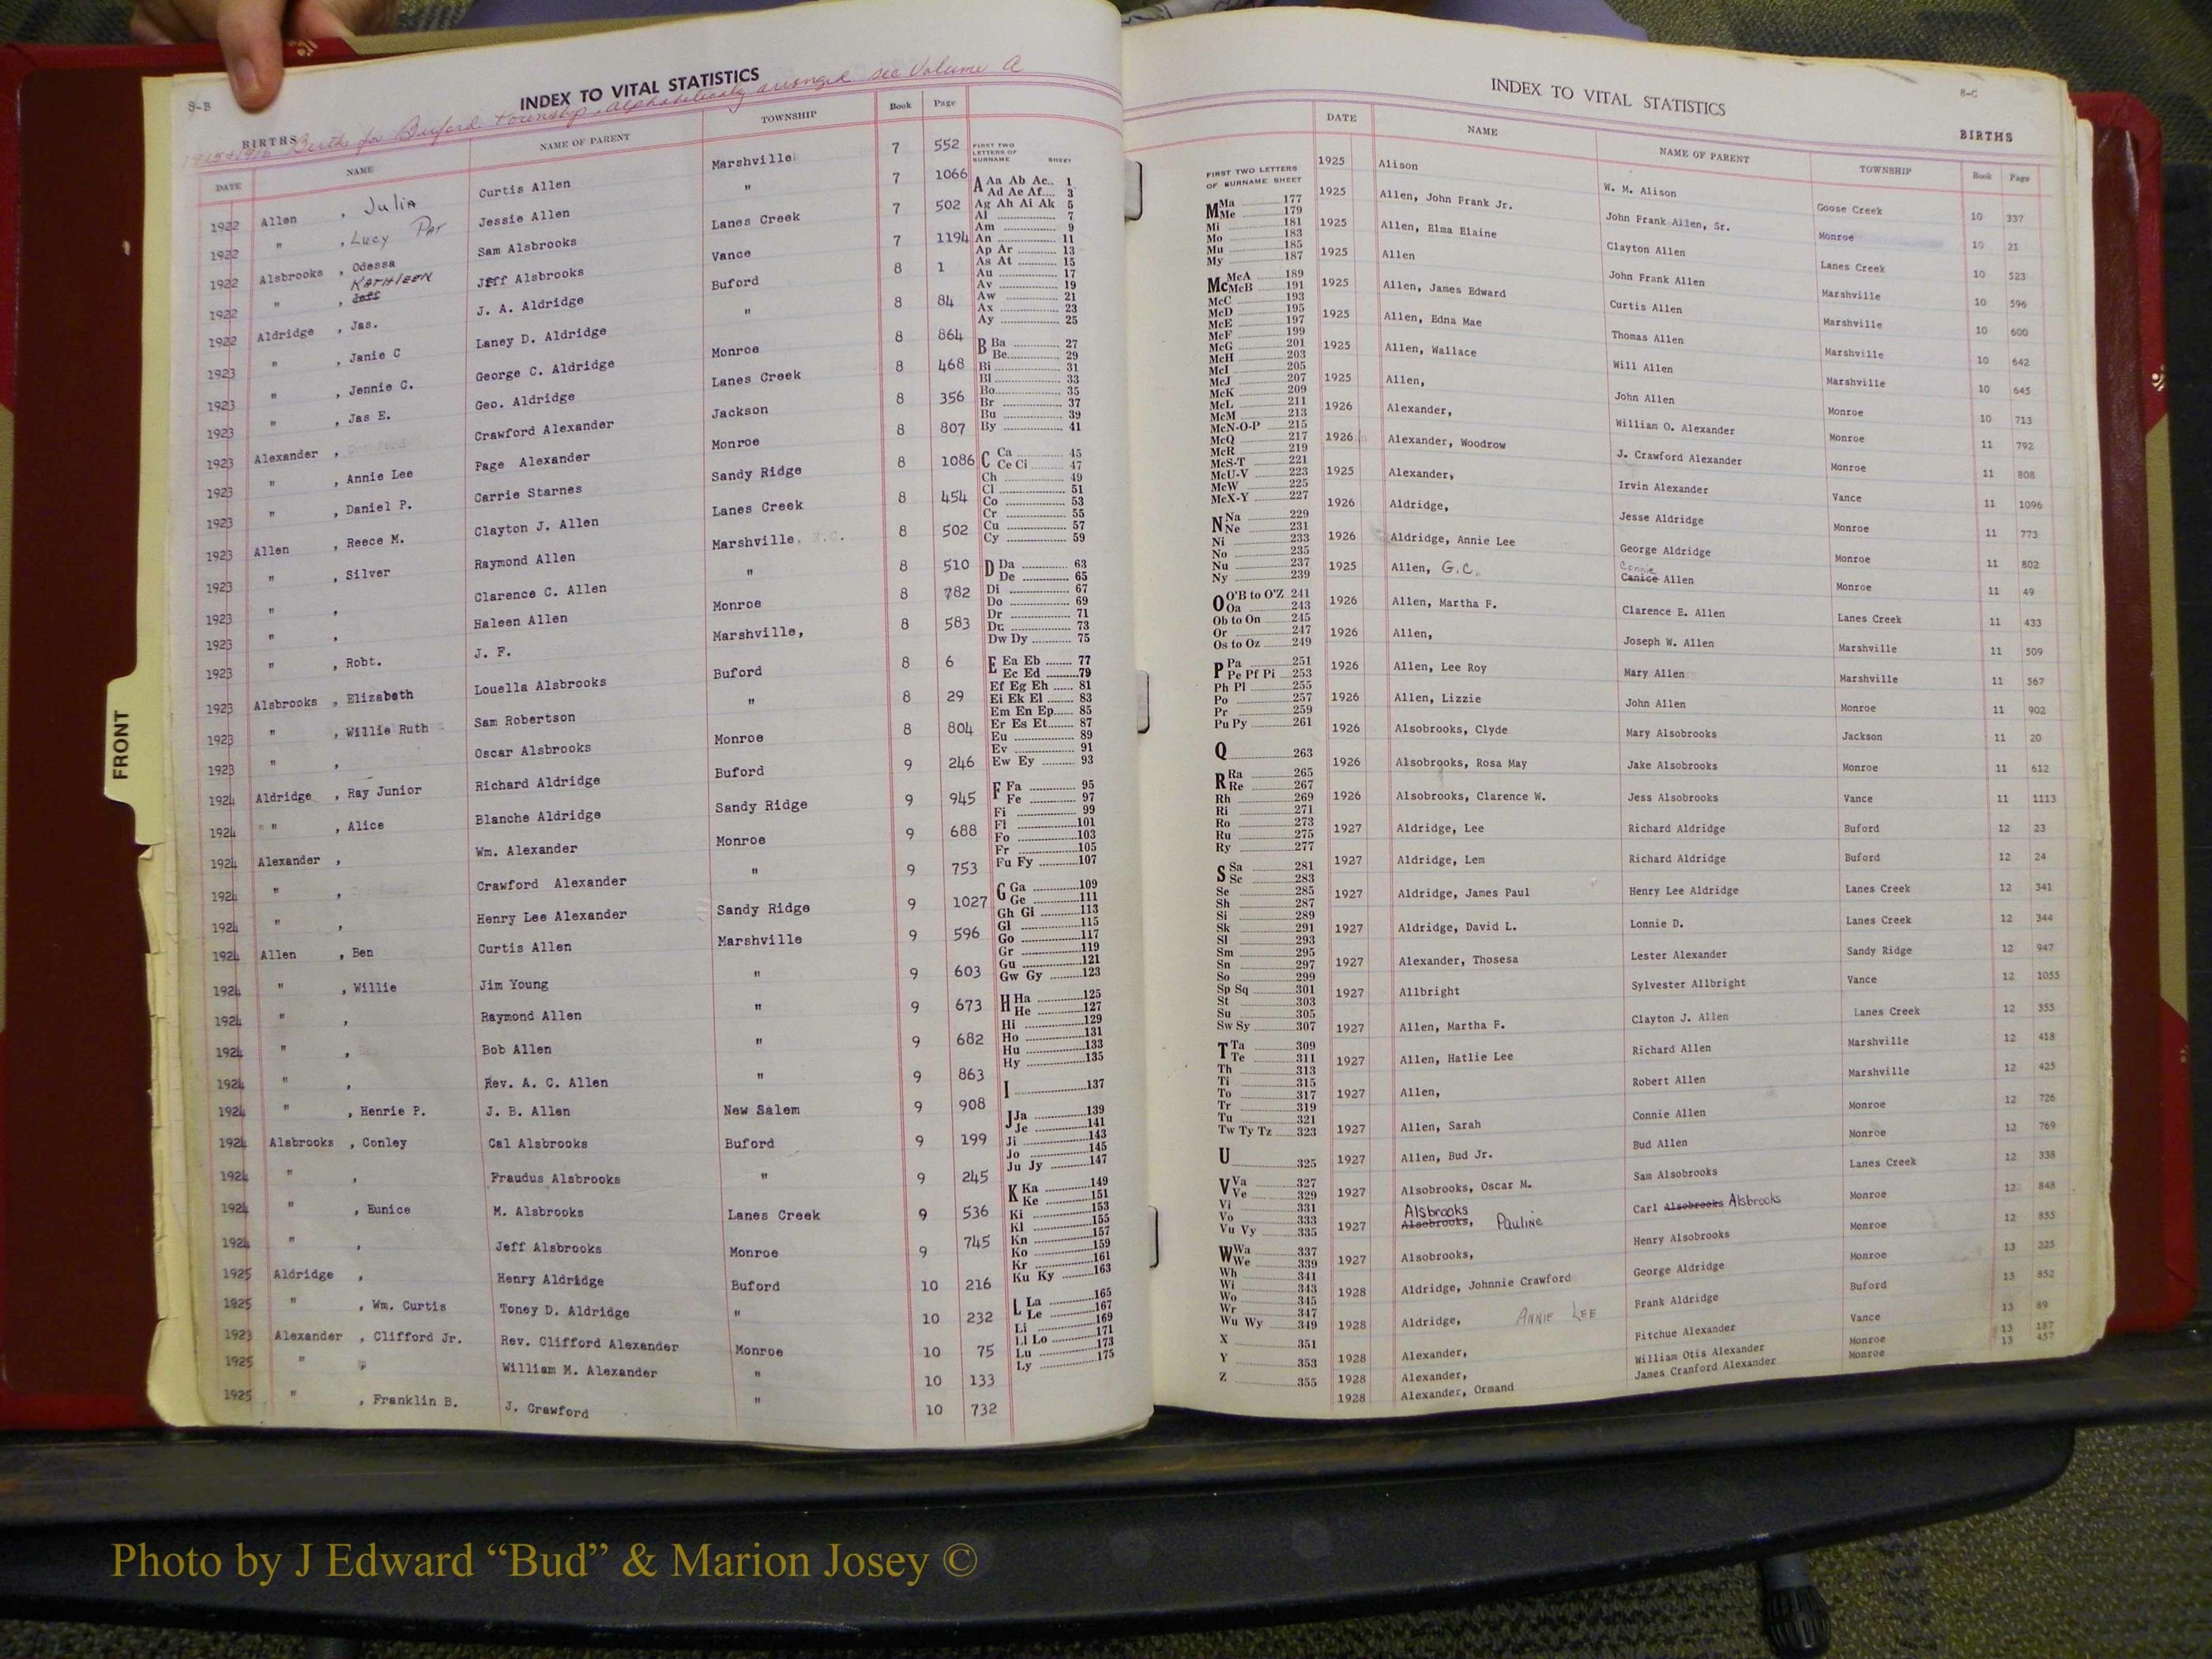 8-B
INDEX TO VITAL STATISTICS
1915 & 1916 Births for Buford township, alphabetically arranged see Volume A
BIRTHS
DATE NAME NAME OF PARENT TOWNSHIP Book Page
1922 Allen , Julia Curtis Allen Marshville 7 552
1922 " , Lucy Pat Jessie Allen " 7 1066
1922 Alsbrooks , Odessa Sam Alsbrooks Lanes Creek 7 502
1922 " , KATHLEEN Jeff Jeff Alsbrooks Vance 7 1194
1922 Aldridge , Jas. J. A. Aldridge Buford 8 1
1923 " , Janie C Laney D. Aldridge " 8 84
1923 " , Jennie C. George C. Aldridge Monroe 8 864
1923 " , Jas E. Geo. Aldridge Lanes Creek 8 468
1923 Alexander , Crawford Alexander Jackson 8 356
1923 " , Annie Lee Page Alexander Monroe 8 807
1923 " , Daniel P. Carrie Starnes Sandy Ridge 8 1086
1923 Allen , Reece M. Clayton J. Allen Lanes Creek 8 454
1923 " , Silver Raymond Allen Marshville, N.C. 8 502
1923 " , Clarence C. Allen " 8 510
1923 " , Haleen Allen Monroe 8 782
1923 " , Robt. J. F. Marshville, 8 583
1923 Alsbrooks , Elizabeth Louella Alsbrooks Buford 8 6
1923 " , Willie Ruth Sam Robertson " 8 29
1923 " , Oscar Alsbrooks Monroe 8 804
1924 Aldridge , Ray Junior Richard Aldridge Buford 9 246
1924 " " , Alice Blanche Aldridge Sandy Ridge 9 945
1924 Alexander , Wm. Alexander Monroe 9 688
1924 " , Crawford Alexander " 9 753
1924 " , Henry Lee Alexander Sandy Ridge 9 1027
1924 Allen , Ben Curtis Allen Marshville 9 596
1924 " , Willie Jim Young " 9 603
1924 " , Raymond Allen " 9 673
1924 " , Bob Allen " 9 682
1924 " , Rev. A. C. Allen " 9 863
1924 " , Henrie P. J. B. Allen New Salem 9 908
1924 Alsbrooks , Conley Cal Alsbrooks Buford 9 199
1924 " , Fraudus Alsbrooks " 9 245
1924 " , Eunice M. Alsbrooks Lanes Creek 9 536
1924 " , Jeff Alsbrooks Monroe 9 745
1925 Aldridge , Henry Aldridge Buford 10 216
1925 " , Wm. Curtis Toney D. Aldridge " 10 232
1923 Alexander , Clifford Jr. Rev. Clifford Alexander Monroe 10 75
1925 " , William M. Alexander " 10 133
1925 " , Franklin B. J. Crawford " 10 732
FIRST TWO
LETTERS OF
SURNAME SHEET
A Aa Ab Ac.. 1
Ad Ae Af.... 3
Ag Ah Ai Ak 5
Al 7
Am 9
An 11
Ap Ar 13
As At 15
Au 17
Av 19
Aw 21
Ax 23
Ay 25
B Ba 27
Be 29
Bi 31
Bl 33
Bo 35
Br 37
Bu 39
By 41
C Ca 45
Ce Ci 47
Ch 49
Cl 51
Co 53
Cr 55
Cu 57
Cy 59
D Da 63
De 65
Di 67
Do 69
Dr 71
Du 73
Dw Dy 75
E Ea Eb 77
Ec Ed 79
Ef Eg Eh 81
Ei Ek El 83
Em En Ep 85
Er Es Et 87
Eu 89
Ev 91
Ew Ey 93
F Fa 95
Fe 97
Fi 99
Fl 101
Fo 103
Fr 105
Fu Fy 107
G Ga 109
Ge 111
Gh Gi 113
Gl 115
Go 117
Gr 119
Gu 121
Gw Gy 123
H Ha 125
He 127
Hi 129
Ho 131
Hu 133
Hy 135
I 137
J Ja 139
Je 141
Ji 143
Jo 145
Ju Jy 147
K Ka 149
Ke 151
Ki 153
Kl 155
Kn 157
Ko 159
Kr 161
Ku Ky 163
L La 165
Le 167
Li 169
Ll Lo 171
Lu 173
Ly 175
FRONT
INDEX TO VITAL STATISTICS
8-C
BIRTHS
FIRST TWO LETTERS
OF SURNAME SHEET
M Ma 177
Me 179
Mi 181
Mo 183
Mu 185
My 187
Mc McA 189
McB 191
McC 193
McD 195
McE 197
McF 199
McG 201
McH 203
McI 205
McJ 207
McK 209
McL 211
McM 213
McN-O-P 215
McQ 217
McR 219
McS-T 221
McU-V 223
McW 225
McX-Y 227
N Na 229
Ne 231
Ni 233
No 235
Nu 237
Ny 239
O O'B to O'Z 241
Oa 243
Ob to On 245
Or 247
Os to Oz 249
P Pa 251
Pe Pf Pi 253
Ph Pl 255
Po 257
Pr 259
Pu Py 261
Q 263
R Ra 265
Re 267
Rh 269
Ri 271
Ro 273
Ru 275
Ry 277
S Sa 281
Sc 283
Se 285
Sh 287
Si 289
Sk 291
Sl 293
Sm 295
Sn 297
So 299
Sp Sq 301
St 303
Su 305
Sw Sy 307
T Ta 309
Te 311
Th 313
Ti 315
To 317
Tr 319
Tu 321
Tw Ty Tz 323
U 325
V Va 327
Ve 329
Vi 331
Vo 333
Vu Vy 335
W Wa 337
We 339
Wh 341
Wi 343
Wo 345
Wr 347
Wu Wy 349
X 351
Y 353
Z 355
DATE NAME NAME OF PARENT TOWNSHIP Book Page
1925 Alison W. M. Alison Goose Creek 10 337
1925 Allen, John Frank Jr. John Frank Allen, Sr. Monroe 10 21
1925 Allen, Elma Elaine Clayton Allen Lanes Creek 10 523
1925 Allen John Frank Allen Marshville 10 596
1925 Allen, James Edward Curtis Allen Marshville 10 600
1925 Allen, Edna Mae Thomas Allen Marshville 10 642
1925 Allen, Wallace Will Allen Marshville 10 645
1925 Allen, John Allen Monroe 10 713
1926 Alexander, William O. Alexander Monroe 11 792
1926 Alexander, Woodrow J. Crawford Alexander Monroe 11 808
1925 Alexander, Irvin Alexander Vance 11 1096
1926 Aldridge, Jesse Aldridge Monroe 11 773
1926 Aldridge, Annie Lee George Aldridge Monroe 11 802
1925 Allen, G.C. Connie Canice Allen Monroe 11 49
1926 Allen, Martha F. Clarence E. Allen Lanes Creek 11 433
1926 Allen, Joseph W. Allen Marshville 11 509
1926 Allen, Lee Roy Mary Allen Marshville 11 567
1926 Allen, Lizzie John Allen Monroe 11 902
1926 Alsobrooks, Clyde Mary Alsobrooks Jackson 11 20
1926 Alsobrooks, Rosa May Jake Alsobrooks Monroe 11 612
1926 Alsobrooks, Clarence W. Jess Alsobrooks Vance 11 1113
1927 Aldridge, Lee Richard Aldridge Buford 12 23
1927 Aldridge, Lem Richard Aldridge Buford 12 24
1927 Aldridge, James Paul Henry Lee Aldridge Lanes Creek 12 341
1927 Aldridge, David L. Lonnie D. Lanes Creek 12 344
1927 Alexander, Thosesa Lester Alexander Sandy Ridge 12 947
1927 Allbright Sylvester Allbright Vance 12 1055
1927 Allen, Martha F. Clayton J. Allen Lanes Creek 12 355
1927 Allen, Hatlie Lee Richard Allen Marshville 12 418
1927 Allen, Robert Allen Marshville 12 425
1927 Allen, Sarah Connie Allen Monroe 12 726
1927 Allen, Bud Jr. Bud Allen Monroe 12 769
1927 Alsobrooks, Oscar M. Sam Alsobrooks Lanes Creek 12 338
1927 Alsbrooks Alsobrooks, Pauline Carl Alsobrooks Alsbrooks Monroe 12 848
1927 Alsobrooks, Henry Alsobrooks Monroe 12 855
1928 Aldridge, Johnnie Crawford George Aldridge Monroe 13 225
1928 Aldridge, ANNIE LEE Frank Aldridge Buford 13 852
1928 Alexander, Fitchue Alexander Vance 13 89
1928 Alexander, William Otis Alexander Monroe 13 187
1928 Alexander, Ormand James Cranford Alexander Monroe 13 457
Photo by J Edward “Bud” & Marion Josey ©